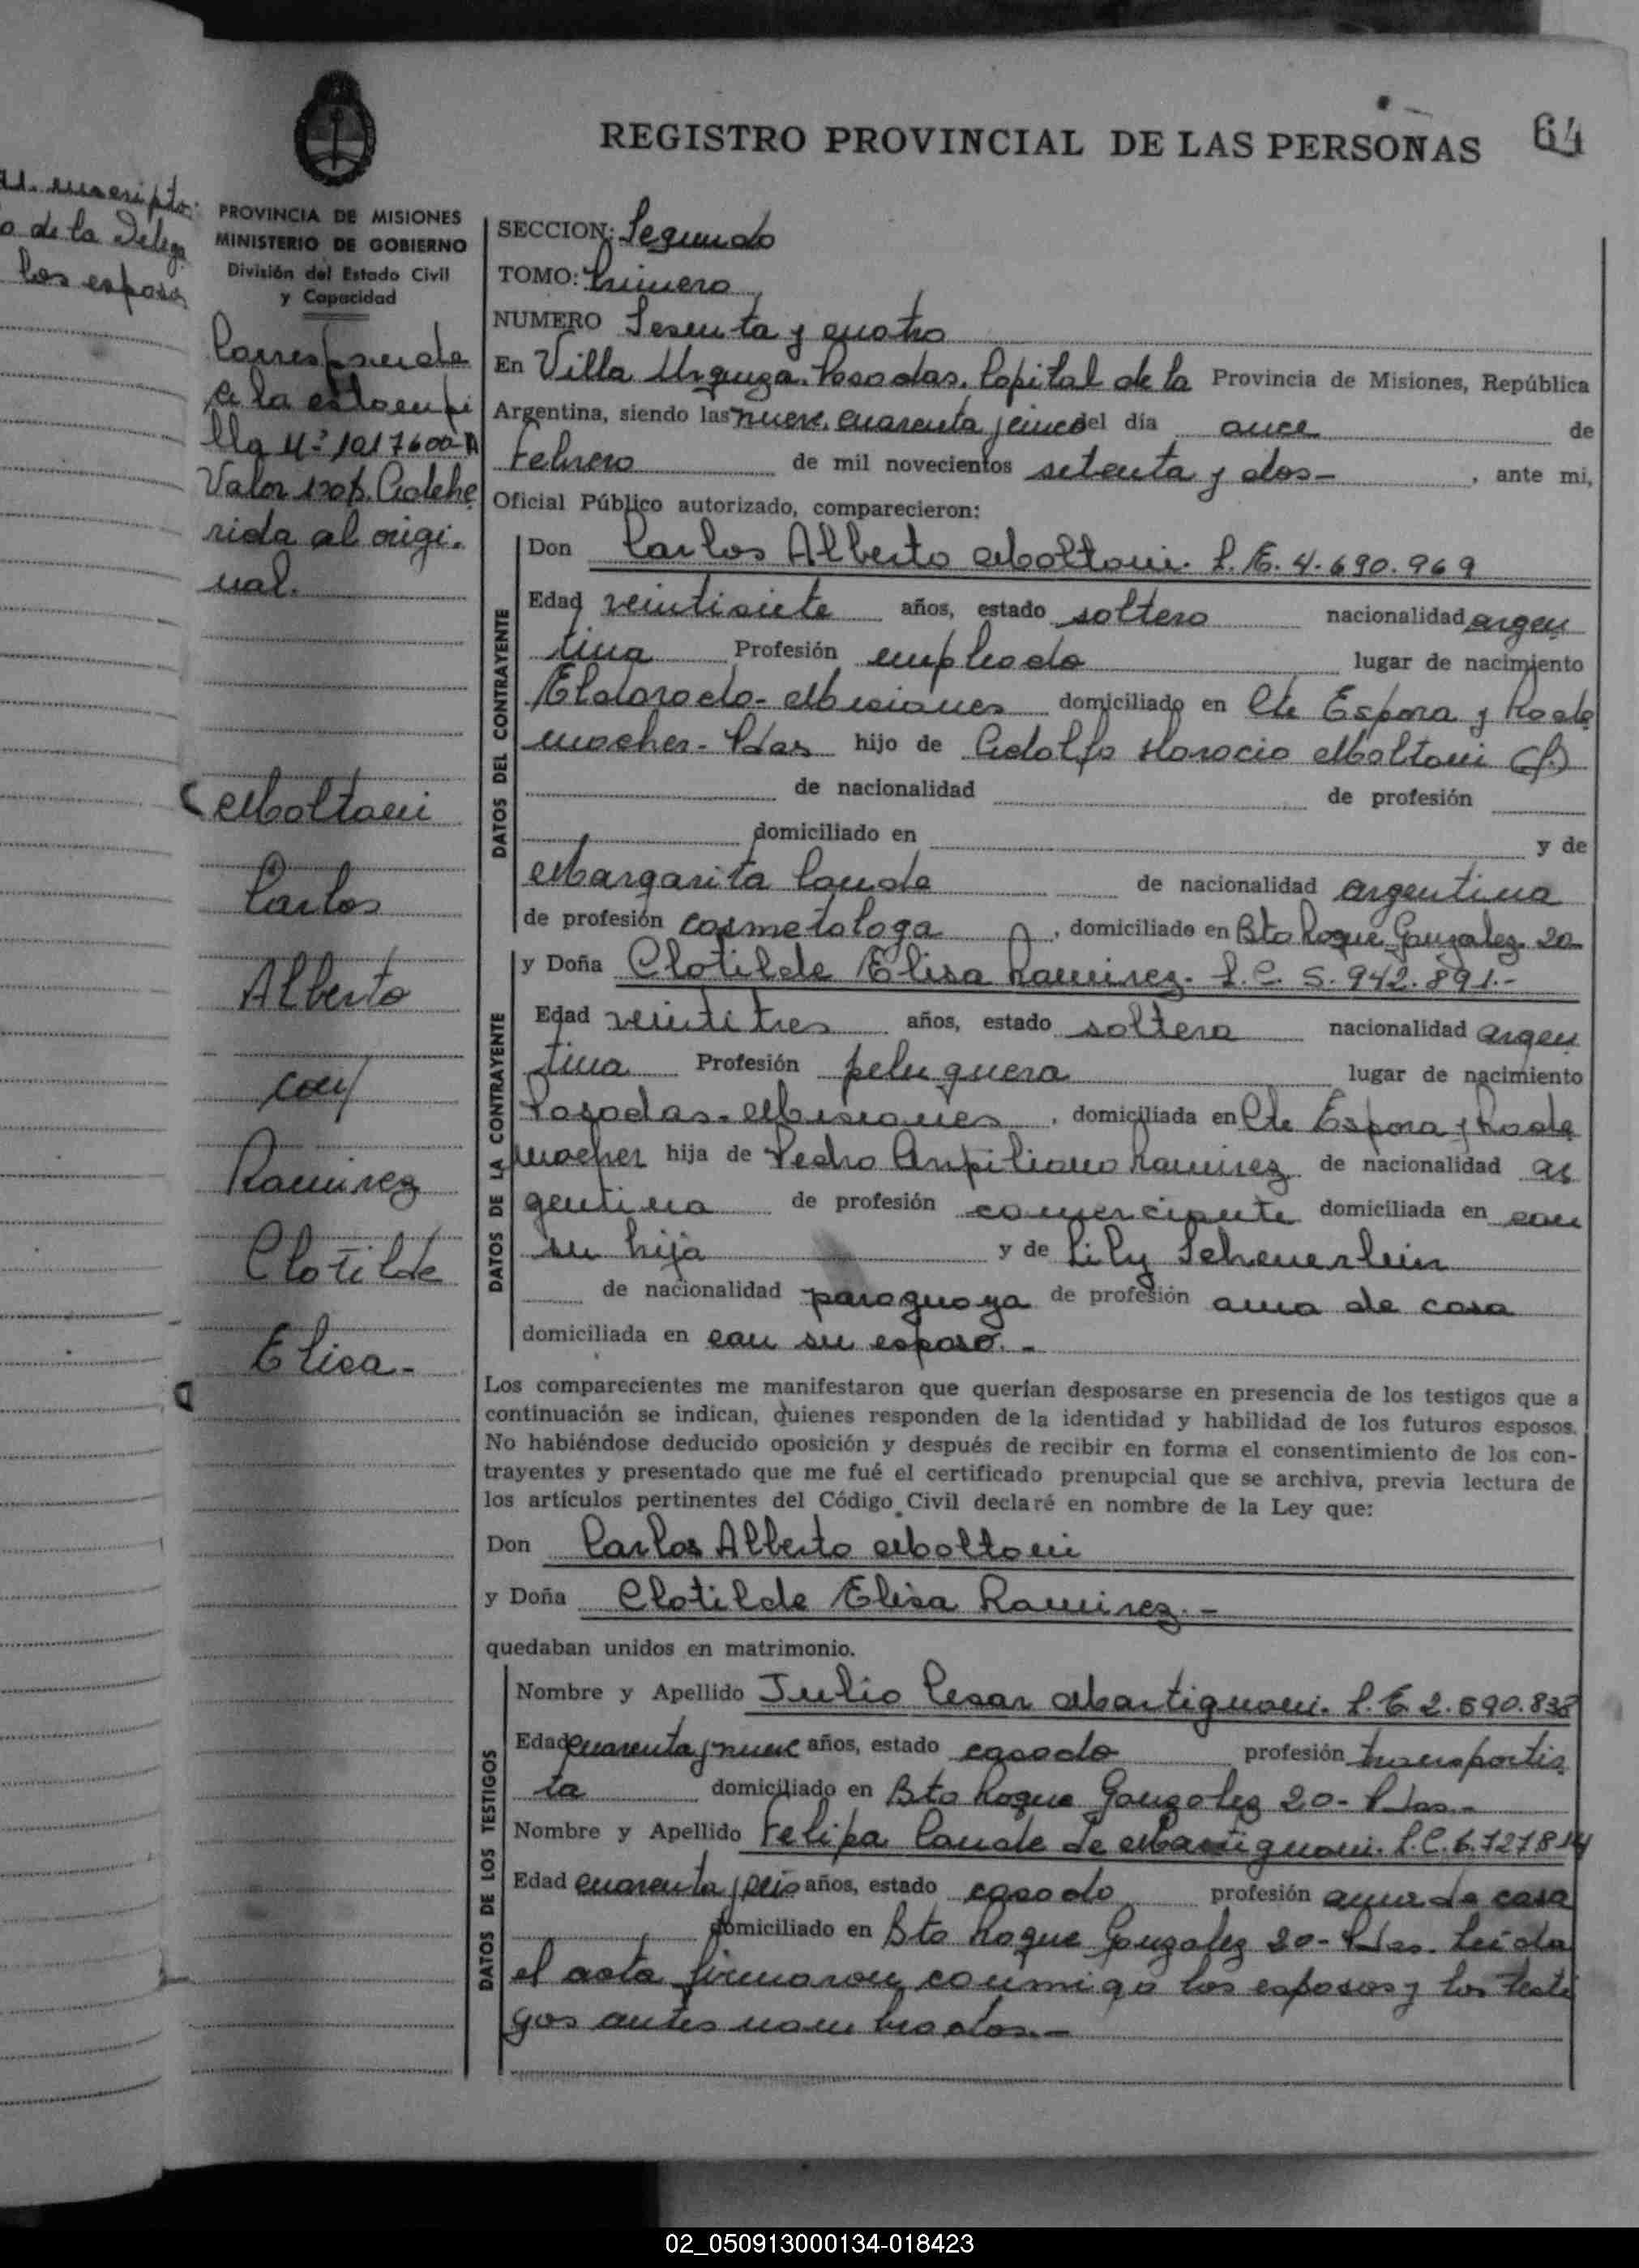 u. inscripto:
o de la Delega
los esposos
PROVINCIA DE MISIONES
MINISTERIO DE GOBIERNO
División del Estado Civil
y Capacidad
Corresponde
a la estampi
lla Nº 1017600-A
Valor
Adhe
rida al origi.
nal.
Moltoni
Carlos
Alberto
con/
Ramirez
Clotilde
Elisa-
REGISTRO PROVINCIAL DE LAS PERSONAS 64
SECCION: Segundo
TOMO: Primero
NUMERO Sesenta y cuatro
En Villa Urquiza. Posadas. Capital de la Provincia de Misiones, República
Argentina, siendo las nueve, cuarenta y cinco del día once de
Febrero de mil novecientos setenta y dos- , ante mi,
Oficial Público autorizado, comparecieron:
DATOS DEL CONTRAYENTE
Don Carlos Alberto Moltoni. L.E. 4.690.969
Edad veintisiete años, estado soltero nacionalidad argen
tina Profesión empleado lugar de nacimiento
Eldorado- Misiones domiciliado en Cte Espora y Rade
macher- Pdas hijo de Adolfo Horacio Moltoni (f.)
de nacionalidad de profesión
domiciliado en y de
Margarita Conde de nacionalidad argentina
de profesión cosmetologa , domiciliado en Bto Roque Gonzalez 20-
DATOS DE LA CONTRAYENTE
y Doña Clotilde Elisa Ramirez. L.C. 5.942.891.-
Edad veintitres años, estado soltera nacionalidad argen
tina Profesión peluquera lugar de nacimiento
Posadas-Misiones , domiciliada en Cte Espora y Rade
macher hija de Pedro Ramirez de nacionalidad ar
gentina de profesión comerciante domiciliada en con
su hija y de Lily Scheuerlein
de nacionalidad paraguaya de profesión ama de casa
domiciliada en con su esposo.-
Los comparecientes me manifestaron que querían desposarse en presencia de los testigos que a
continuación se indican, quienes responden de la identidad y habilidad de los futuros esposos.
No habiéndose deducido oposición y después de recibir en forma el consentimiento de los con-
trayentes y presentado que me fué el certificado prenupcial que se archiva, previa lectura de
los artículos pertinentes del Código Civil declaré en nombre de la Ley que:
Don Carlos Alberto Moltoni
y Doña Clotilde Elisa Ramirez.-
quedaban unidos en matrimonio.
DATOS DE LOS TESTIGOS
Nombre y Apellido Julio Cesar Martignoni. L.E. 2.590.838
Edad cuarenta y nueve años, estado casado profesión transportis
ta domiciliado en Bto Roque Gonzalez 20- Pdas-
Nombre y Apellido Felipa Conde de Martignoni. L.C. 6.727814
Edad cuarenta y seis años, estado casado profesión ama de casa
domiciliado en Bto Roque Gonzalez 20- Pdas. Leida
el acta firmaron conmigo los esposos y los testi
gos antes nombrados.-
02_050913000134-018423